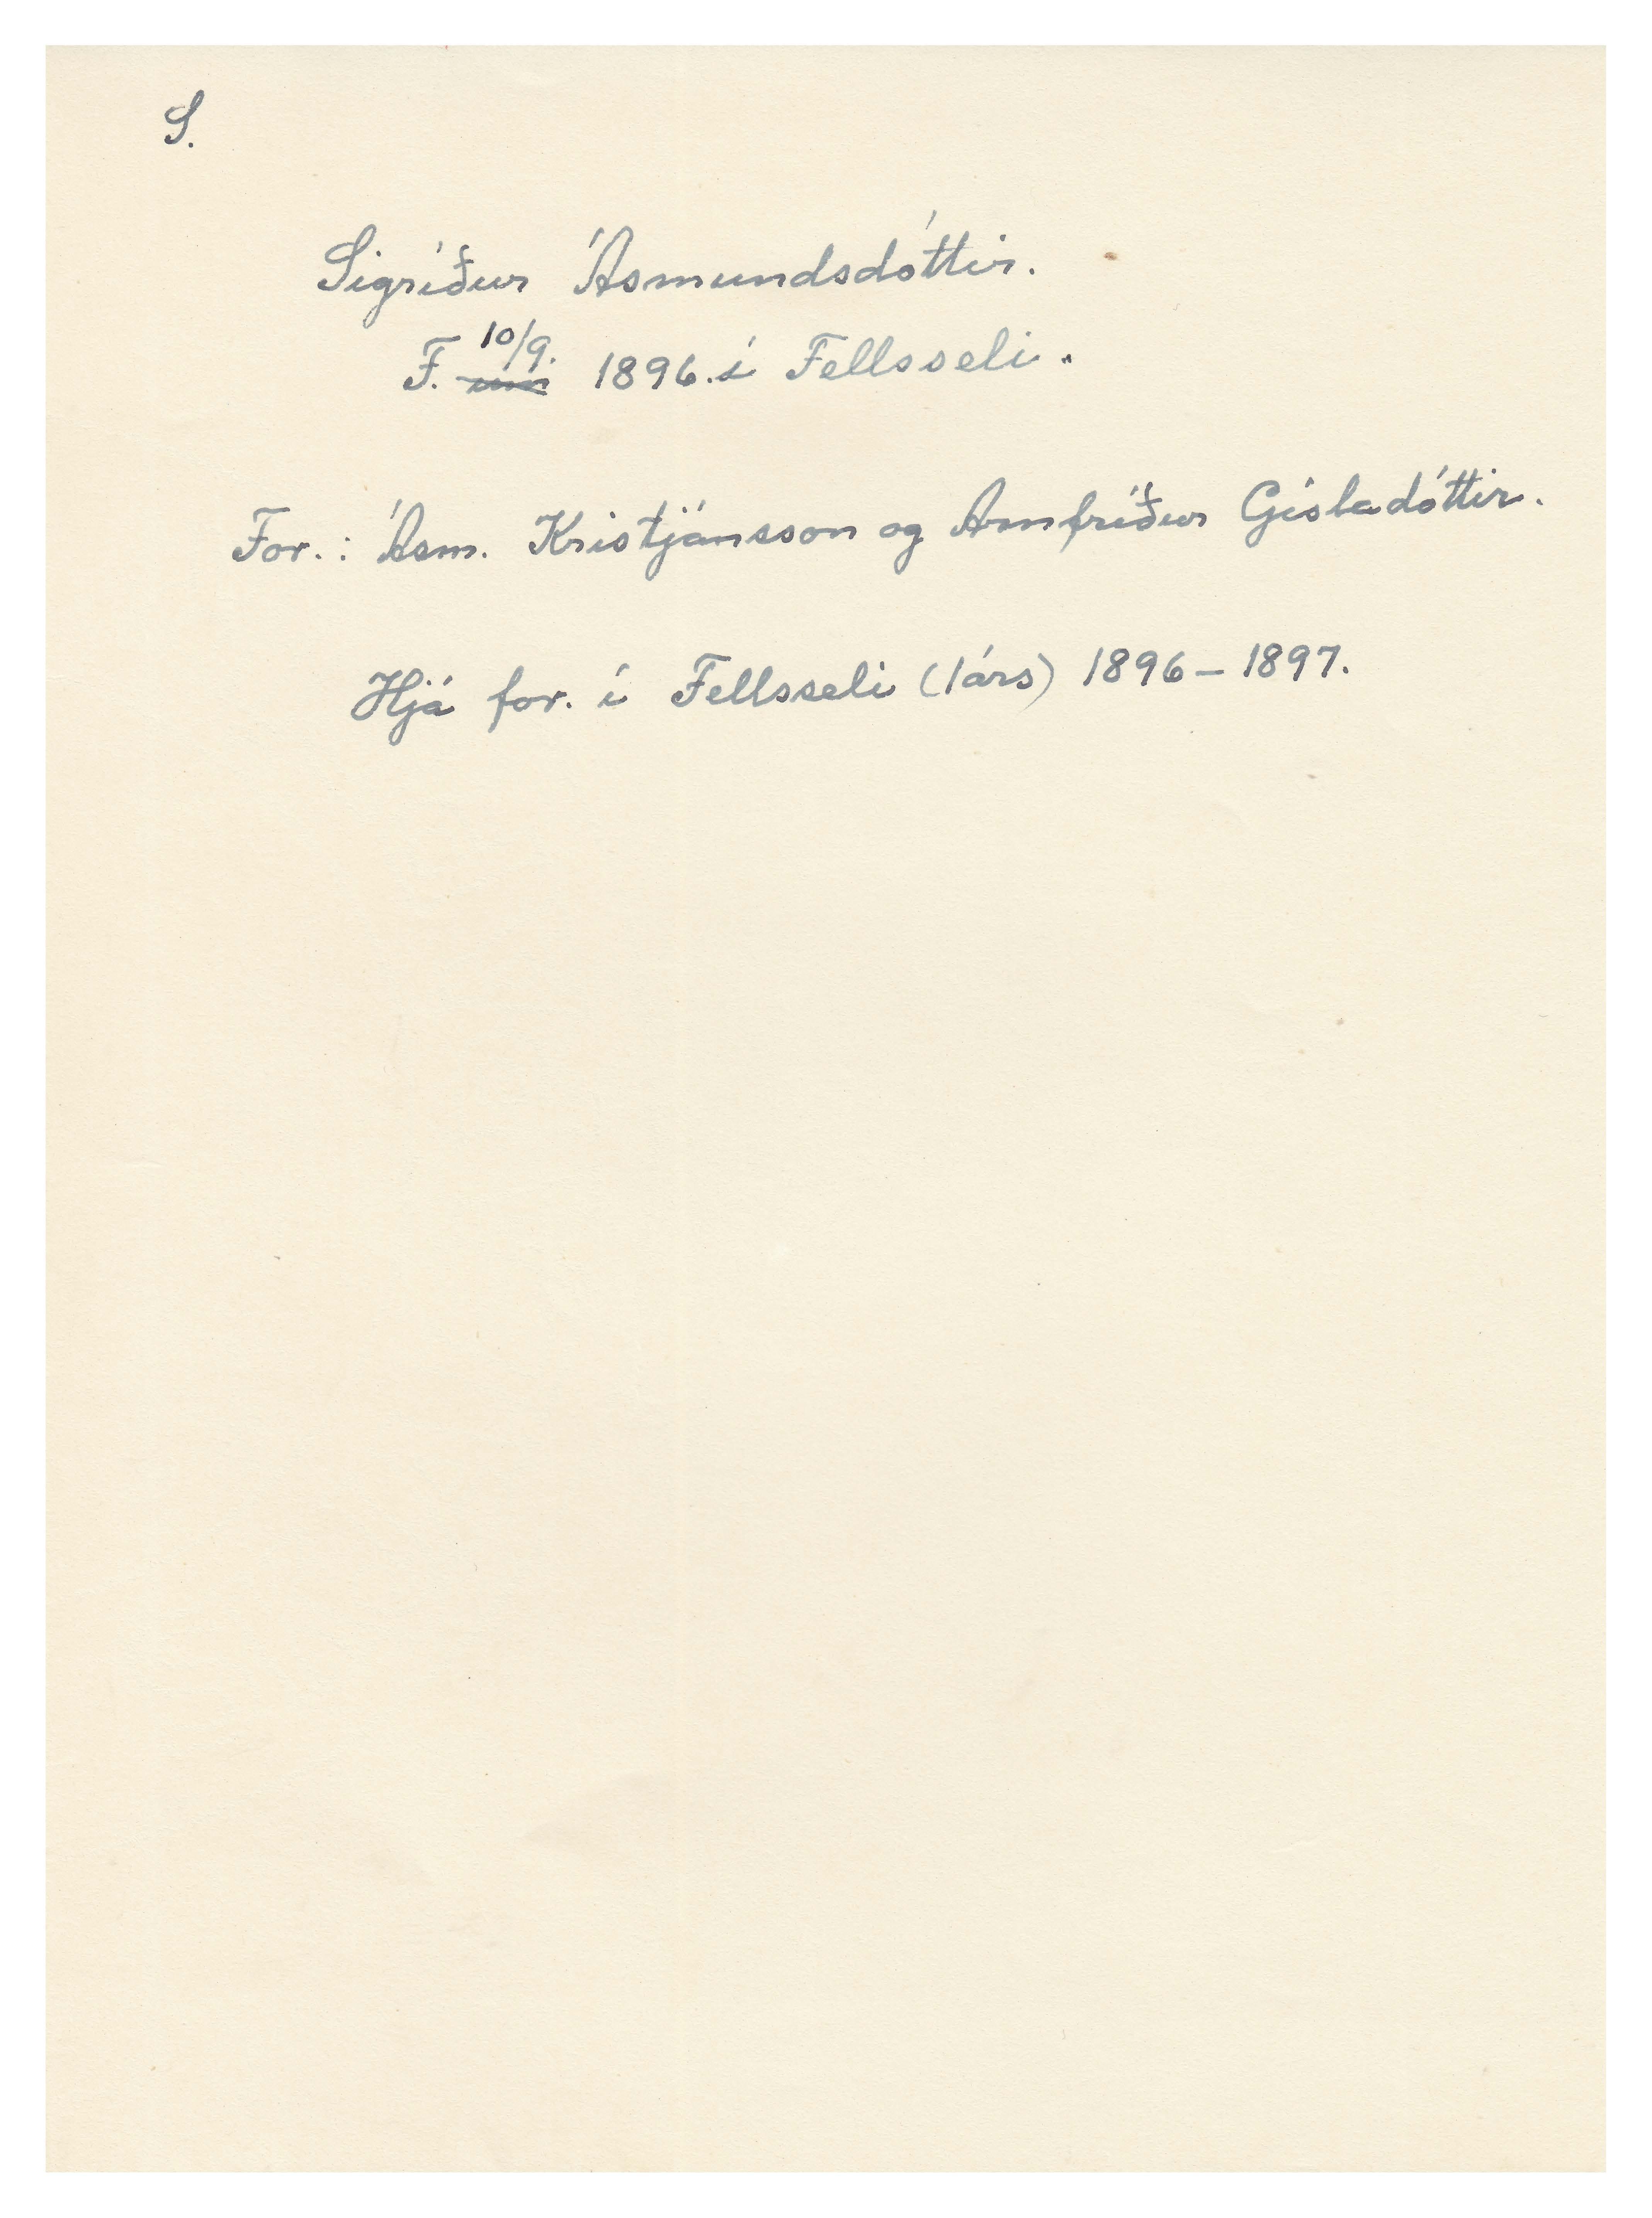 S.
Sigríður Ásmundsdóttir.
F. 10/9. 1896. í Fellsseli.
For.: Ásm. Kristjánsson og Arnfríður Gísladóttir.
Hjá for. í Fellsseli (1árs) 1896 – 1897.